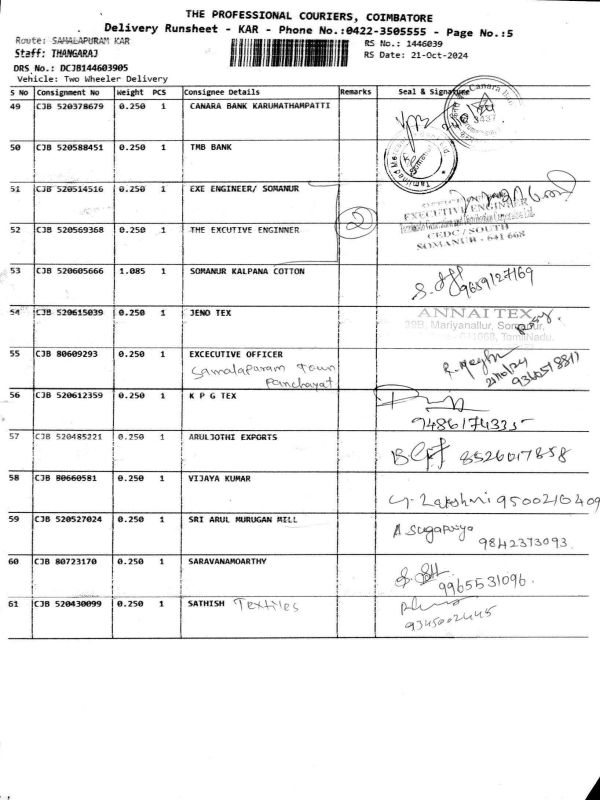 THE PROFESSIONAL COURIERS, COIMBATORE
Delivery Runsheet - KAR - Phone No.:0422-3505555 - Page No.:5
Route: SAMALAPURAM KAR
RS No.: 1446039
Staff: THANGARAJ
RS Date: 21-Oct-2024
DRS No.: DCJB144603905
Vehicle: Two Wheeler Delivery
S No Consignment No Weight PCS Consignee Details Remarks Seal & Signature
49 CJB 520378679 0.250 1 CANARA BANK KARUMATHAMPATTI
50 CJB 520588451 0.250 1 TMB BANK
51 CJB 520514516 0.250 1 EXE ENGINEER/ SOMANUR
52 CJB 520569368 0.250 1 THE EXCUTIVE ENGINNER 2
EXECUTIVE ENGINEER
CEDC / SOUTH
SOMANUR - 641 668
53 CJB 520605666 1.085 1 SOMANUR KALPANA COTTON 9659127169
54 CJB 520615039 0.250 1 JENO TEX ANNAI TEX
39B, Mariyanallur, Somanur,
TamilNadu.
55 CJB 80609293 0.250 1 EXCECUTIVE OFFICER
Samalapuram Town
Panchayat
21/10/24
56 CJB 520612359 0.250 1 K P G TEX
9486174335
57 CJB 520485221 0.250 1 ARULJOTHI EXPORTS 8526017858
58 CJB 80660581 0.250 1 VIJAYA KUMAR
Lakshmi 9500216409
59 CJB 520527024 0.250 1 SRI ARUL MURUGAN MILL A Sugapriya
9842373093.
60 CJB 80723170 0.250 1 SARAVANAMOARTHY
9965531096.
61 CJB 520430099 0.250 1 SATHISH Textiles
9345002445